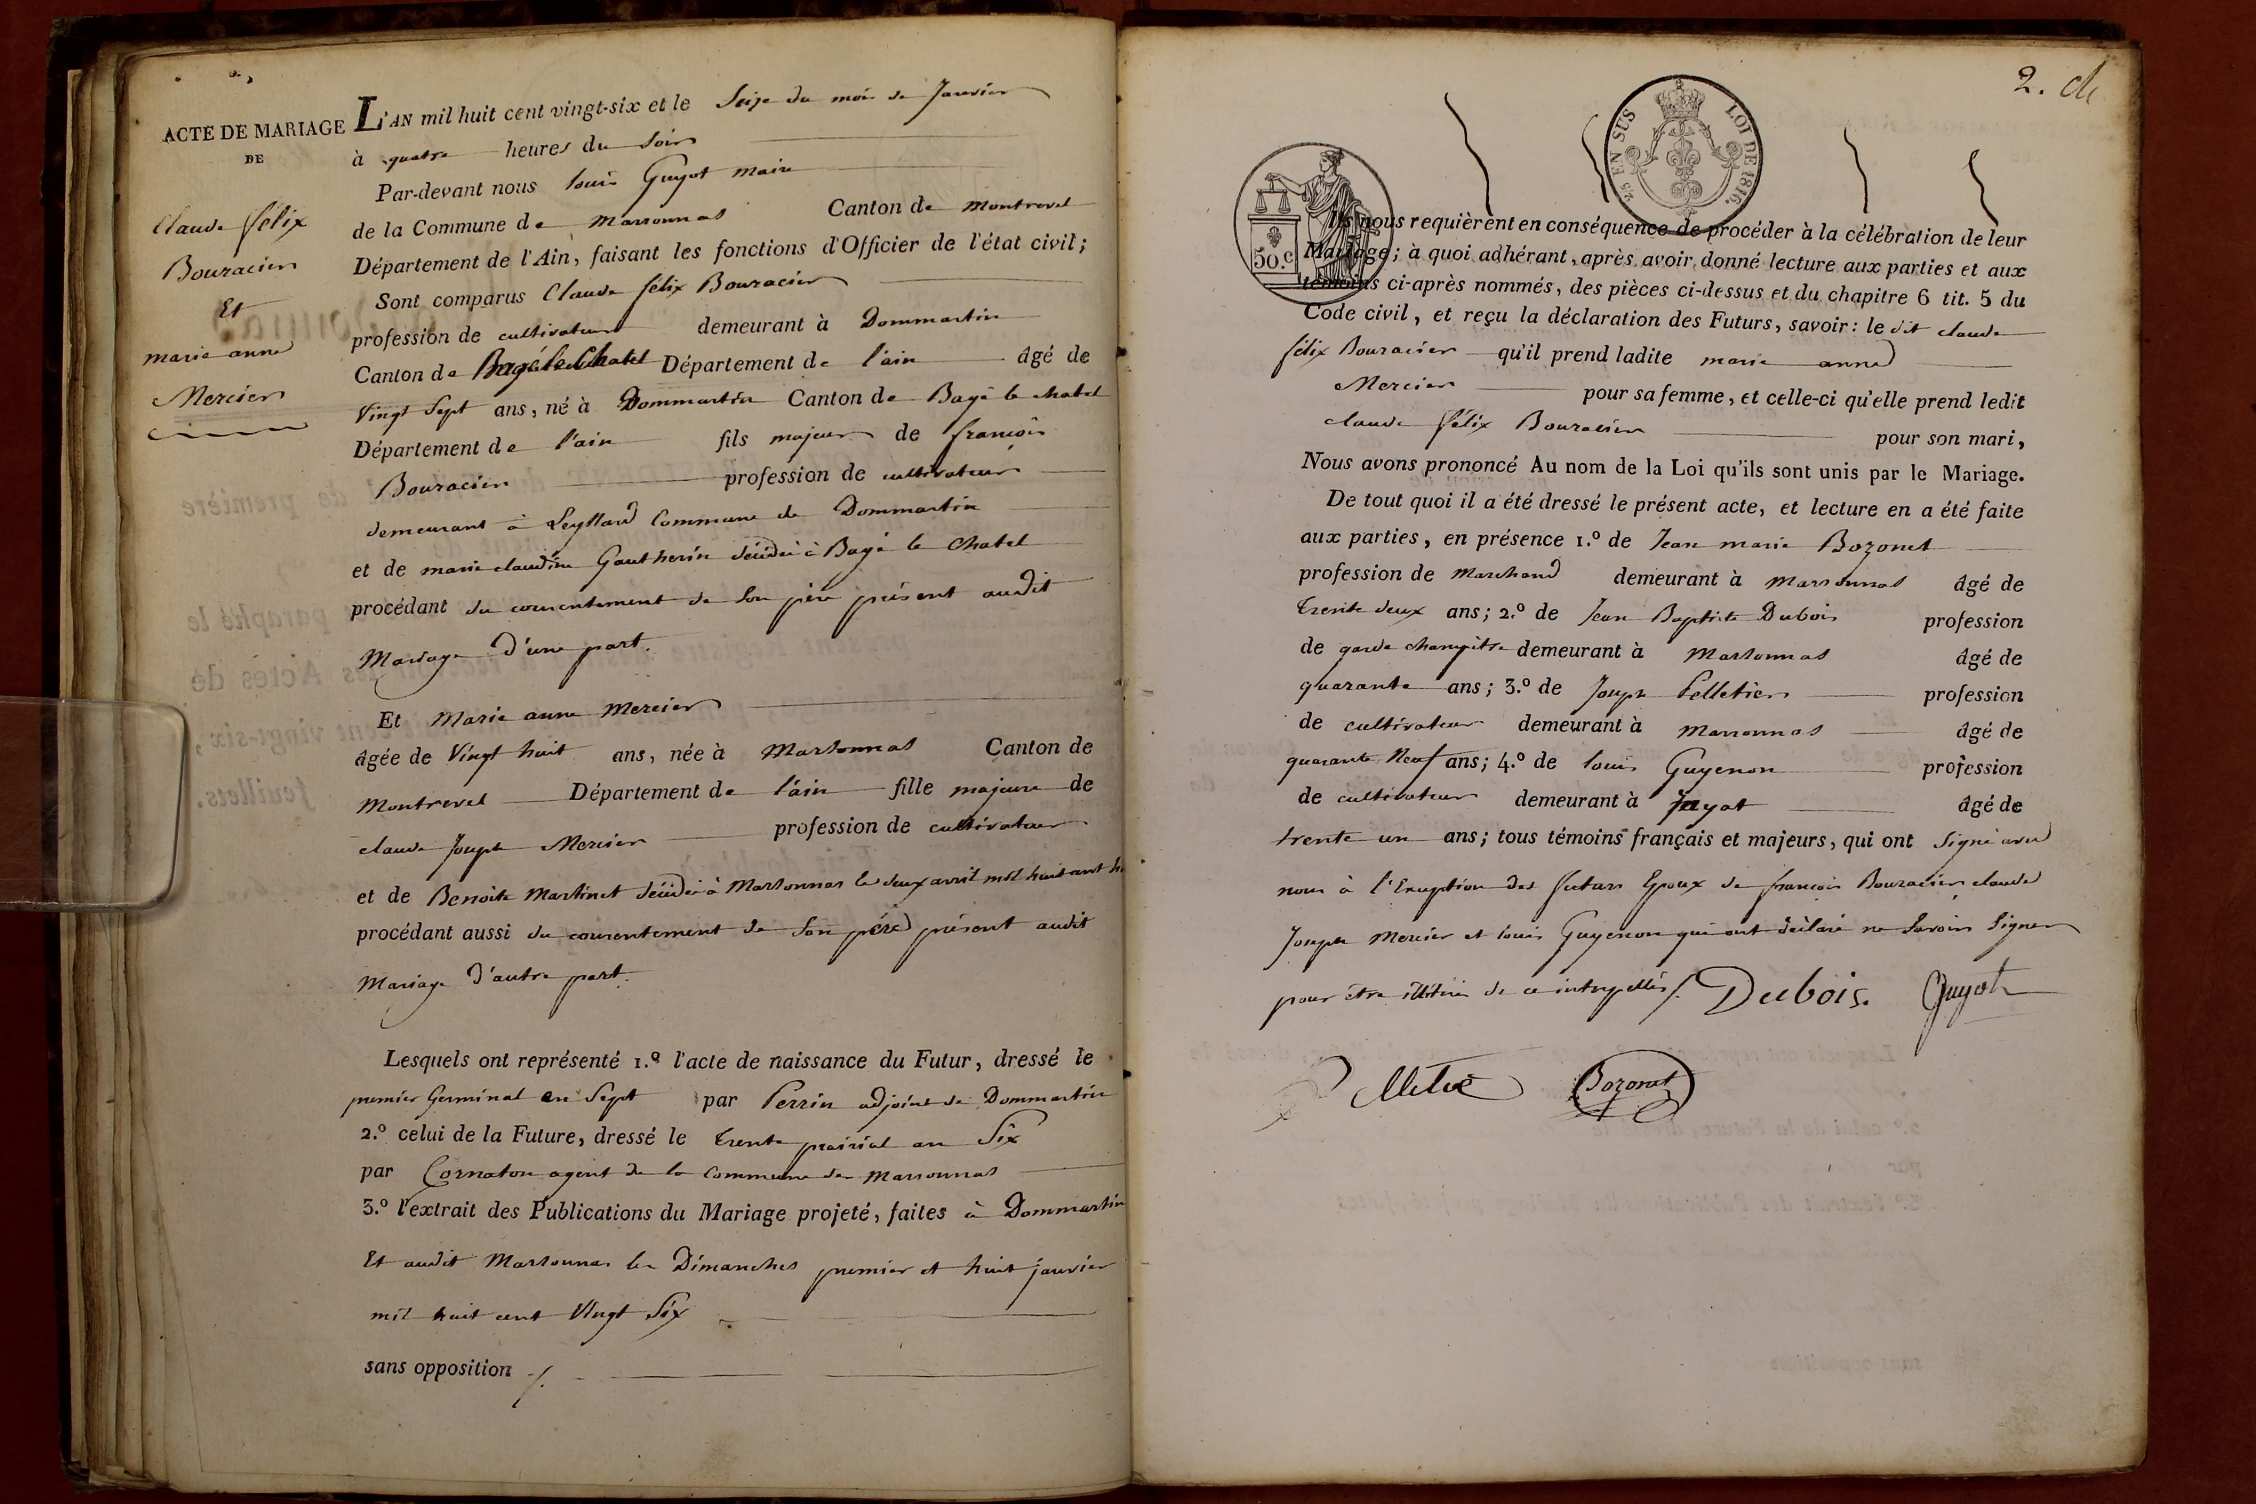 ACTE DE MARIAGE
DE
Claude félix
Bouracier
Et
marie anne
Mercier
L'AN mil huit cent vingt-six et le Seize du mois de Janvier
à quatre heures du Soir
Par-devant nous louis Guyot maire
de la Commune de Marsonnas Canton de Montrevel
Département de l'Ain, faisant les fonctions d'Officier de l'état civil;
Sont comparus Claude félix Bouracier
profession de cultivateur demeurant à Dommartin
Canton de Bagé le Chatel Département de l'ain âgé de
Vingt Sept ans, né à Dommartin Canton de Bagé le chatel
Département de l'ain fils majeur de françois
Bouracier profession de cultivateur
demeurant à Leyllard Commune de Dommartin
et de marie claudine Gautherin décédée à Bagé le Chatel
procédant du consentement de Son père présent audit
Mariage D'une part.
Et Marie anne Mercier
âgée de Vingt huit ans, née à Marsonnas Canton de
Montrevel Département de l'ain fille majeure de
claude Joseph Mercier profession de cultivateur
et de Benoite Martinet décédée à Marsonnas le deux avril mil huit cent
procédant aussi du consentement de Son père présent audit
Mariage D'autre part.
Lesquels ont représenté 1.º l'acte de naissance du Futur, dressé le
premier Germinal an Sept par Perrin adjoint de Dommartin
2.º celui de la Future, dressé le trente prairial an Six
par Cornaton agent de la Commune de Marsonnas
3.º l'extrait des Publications du Mariage projeté, faites à Dommartin
Et audit Marsonnas les Dimanches premier et huit janvier
mil huit cent Vingt Six
sans opposition
2. 
25 EN SUS LOI DE 1816.
50.c
Ils nous requièrent en conséquence de procéder à la célébration de leur
Mariage; à quoi adhérant, après avoir donné lecture aux parties et aux
témoins ci-après nommés, des pièces ci-dessus et du chapitre 6 tit. 5 du
Code civil, et reçu la déclaration des Futurs, savoir: le dit claude
félix Bouracier qu'il prend ladite marie anne
Mercier pour sa femme, et celle-ci qu'elle prend ledit
claude félix Bouracier pour son mari,
Nous avons prononcé Au nom de la Loi qu'ils sont unis par le Mariage.
De tout quoi il a été dressé le présent acte, et lecture en a été faite
aux parties, en présence 1.º de Jean marie Bozonet
profession de Marchand demeurant à Marsonnas âgé de
trente deux ans; 2.º de Jean Baptiste Dubois profession
de garde champêtre demeurant à Marsonnas âgé de
quarante ans; 3.º de Joseph Pelletier profession
de cultivateur demeurant à Marsonnas âgé de
quarante Neuf ans; 4.º de louis Guyenon profession
de cultivateur demeurant à Jayat âgé de
trente un ans; tous témoins français et majeurs, qui ont Signé avec
nous à l'Exception des futurs Epoux de françois Bouracier claude
Joseph Mercier et louis Guyenon qui ont déclaré ne Savoir Signer
pour être illitérés de ce interpellés. Dubois. Guyot
Bozonet